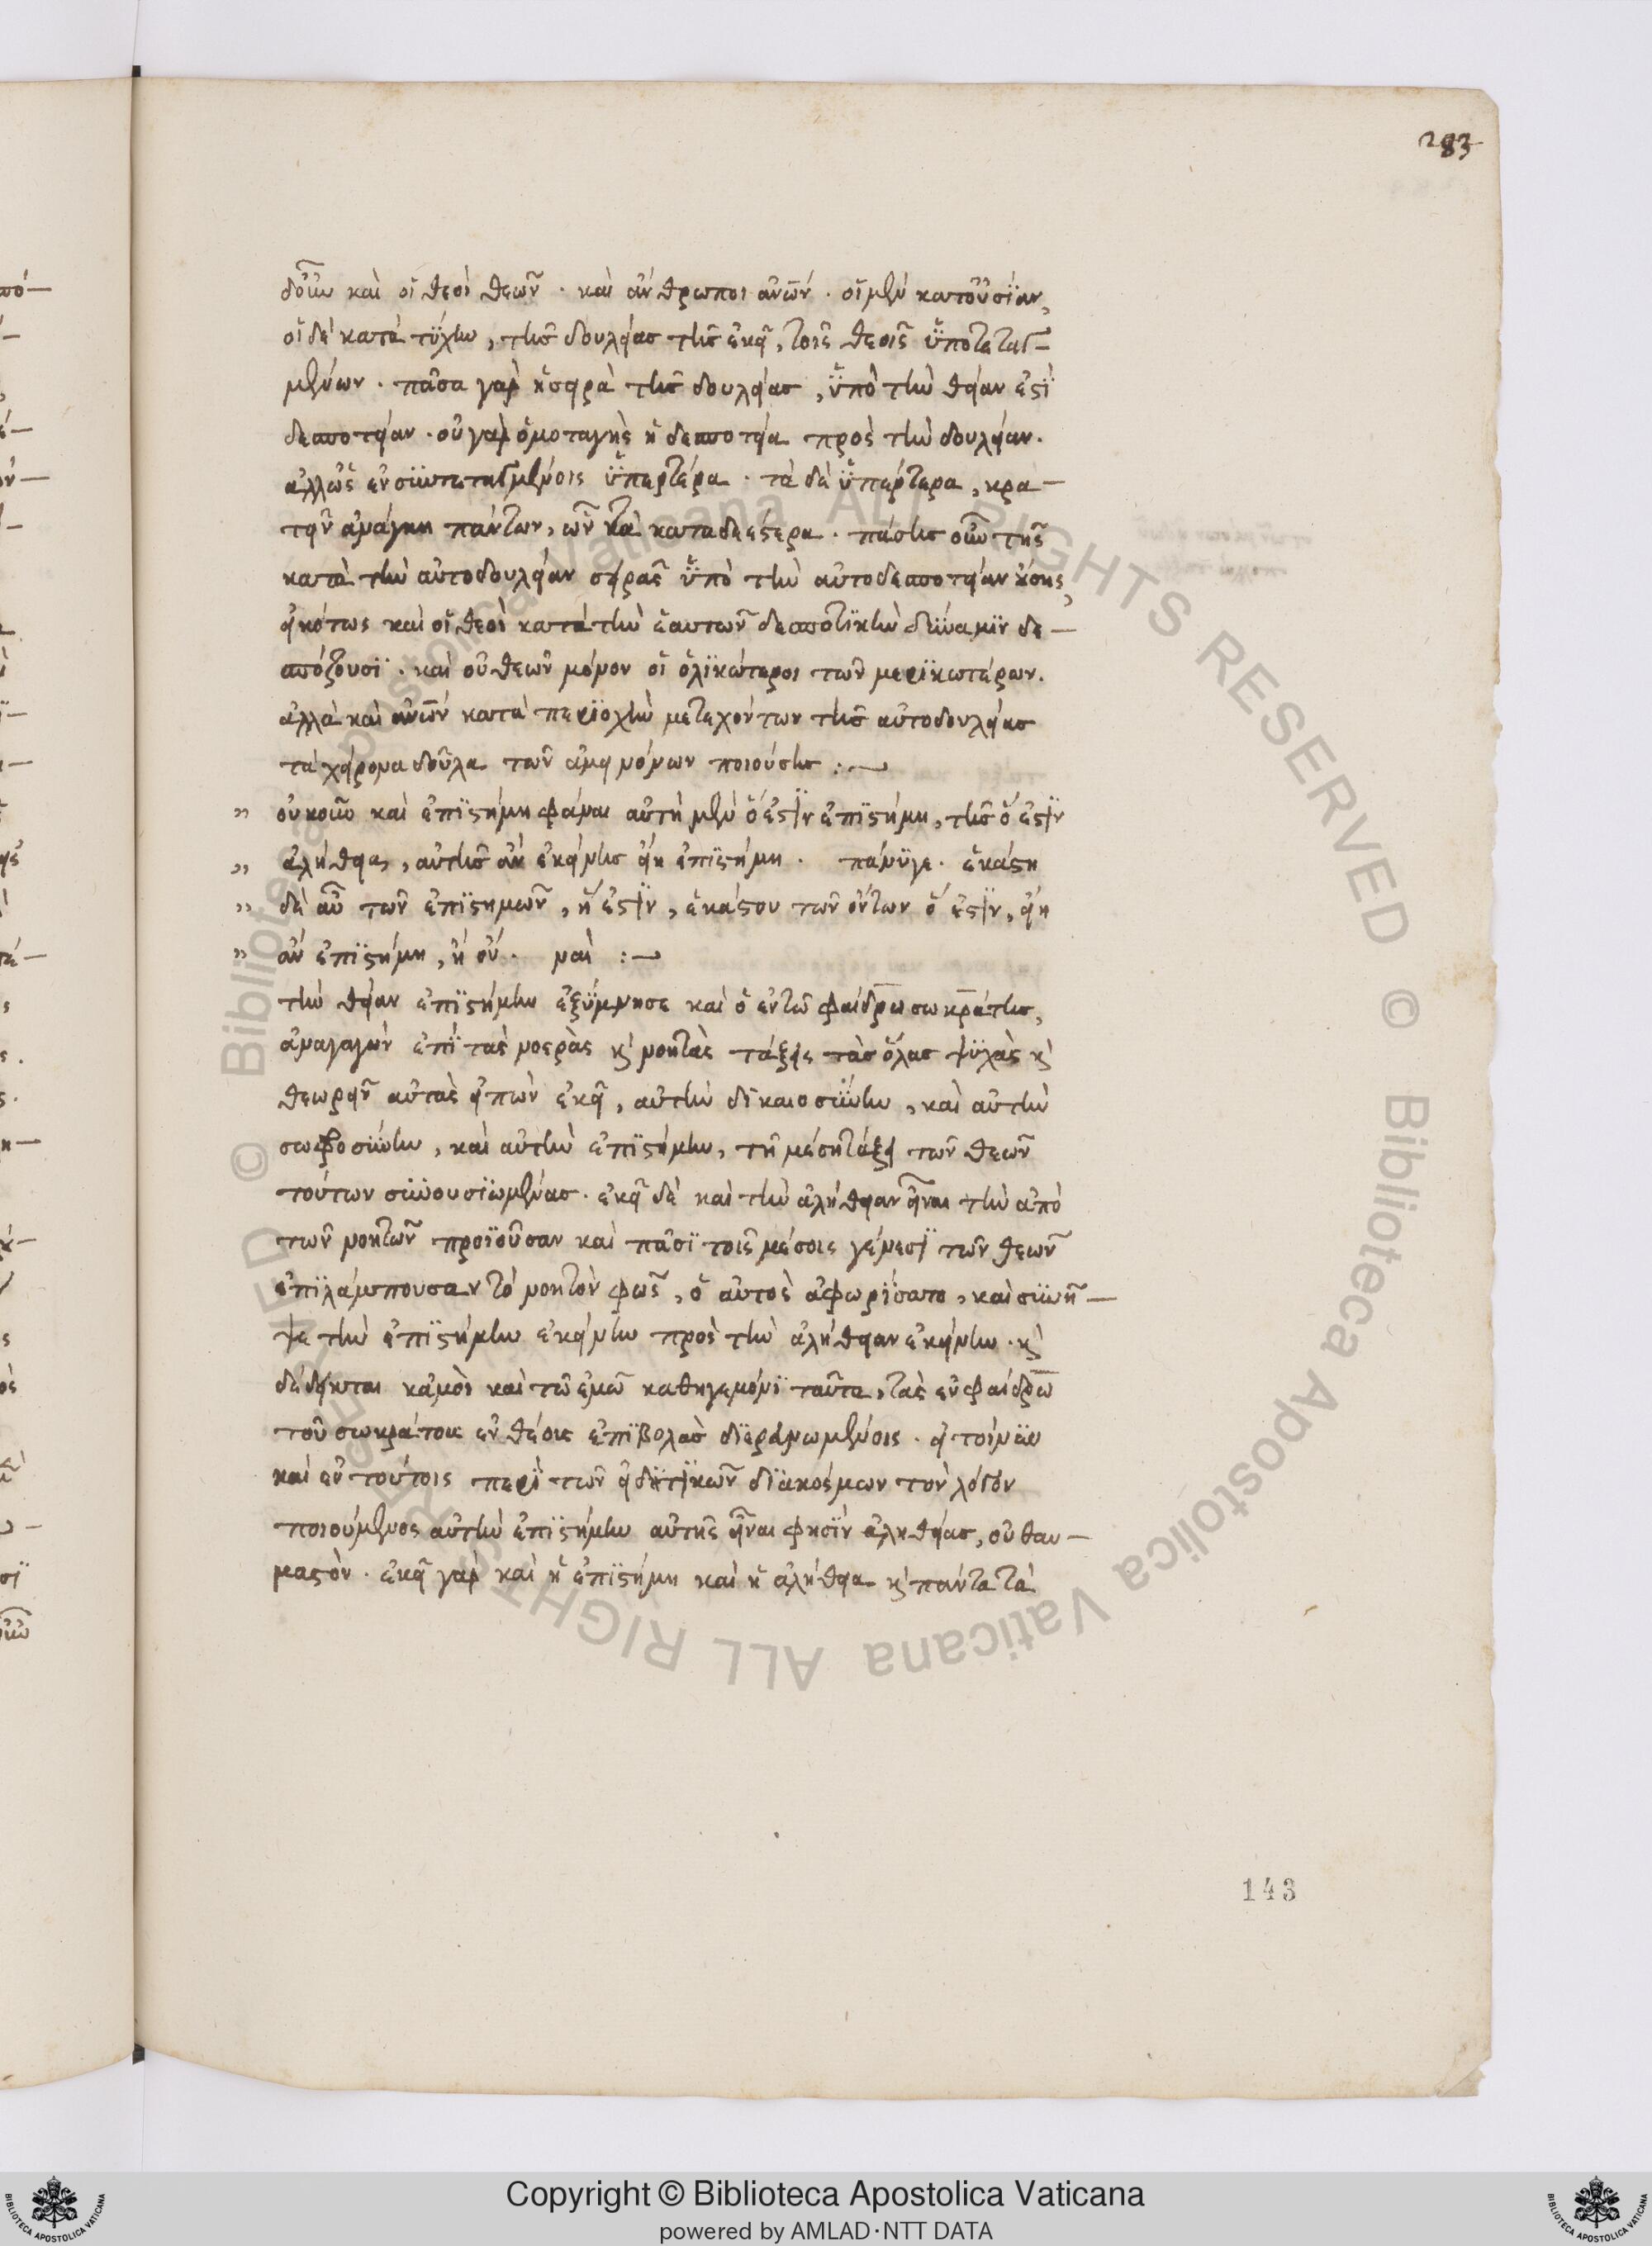 283
δοῦν καὶ οἱ θεοὶ θεῶν · καὶ ἄνθρωποι ἀνῶν · οἱ μὲν κατοὐσίαν,
οἱ δὲ κατὰ τύχην, τῆς δουλείας τῆς ἐκεῖ, τοῖς θεοῖς ὑποτεταγ-
μένων · πᾶσα γὰρ ἡ σειρὰ τῆς δουλείας, ὑπὸ τὴν θείαν ἐστὶ
δεσποτείαν · οὐ γὰρ ὁμοταγὴς ἡ δεσποτεία πρὸς τὴν δουλείαν ·
ἀλλ ὡς ἐν συντεταγμένοις ὑπερτέρα · τὰ δὲ ὑπέρτερα, κρα-
τεῖν ἀνάγκη πάντων, ὧν τὰ καταδεέστερα · πάσης οὖν τῆς
κατὰ τὴν αὐτοδουλείαν σειρᾶς ὑπὸ τὴν αὐτοδεσποτείαν οὔσης,
εἰκότως καὶ οἱ θεοὶ κατὰ τὴν ἑαυτῶν δεσποτικὴν δύναμιν δε-
σπόζουσι · καὶ οὐ θεῶν μόνον οἱ ὁλικώτεροι τῶν μερικωτέρων ·
ἀλλὰ καὶ ἀνῶν κατὰ περιοχὴν μετεχόντων τῆς αὐτοδουλείας
τὰ χείρονα δοῦλα τῶν ἀμεινόνων ποιούσης :
οὐκοῦν καὶ ἐπιστήμη φάναι αὐτὴ μὲν ὅ ἐστιν ἐπιστήμη, τῆς ὅ ἐστιν
ἀλήθεια, αὐτῆς ἂν ἐκείνης εἴη ἐπιστήμη · πάνυγε · ἑκάστη
δὲ αὖ τῶν ἐπιστημῶν, ἥ ἐστιν, ἑκάστου τῶν ὄντων ὅ ἐστιν, εἴη
ἂν ἐπιστήμη, ἢ οὔ · ναὶ :
τὴν θείαν ἐπιστήμην ἐξύμνησε καὶ ὁ ἐν τῶ φαίδρω σωκράτης,
ἀναγαγὼν ἐπὶ τὰς νοερὰς κ νοητὰς τάξεις τὰς ὅλας ψυχὰς κ
θεωρεῖν αὐτὰς εἰπὼν ἐκεῖ, αὐτὴν δικαιοσύνην, καὶ αὐτὴν
σωφροσύνην, καὶ αὐτὴν ἐπιστήμην, τῆ μέση τάξει τῶν θεῶν
τούτων συνουσιωμένας · ἐκεῖ δὲ καὶ τὴν ἀλήθειαν εἶναι τὴν ἀπὸ
τῶν νοητῶν προϊοῦσαν καὶ πᾶσι τοῖς μέσοις γένεσι τῶν θεῶν
ἐπιλάμπουσαν τὸ νοητὸν φῶς, ὁ αὐτὸς ἀφωρίσατο, καὶ συνῆ-
ψε τὴν ἐπιστήμην ἐκείνην πρὸς τὴν ἀλήθειαν ἐκείνην · κ
δέδεικται κἀμοὶ καὶ τῶ ἐμῶ καθηγεμόνι ταῦτα, τὰς ἐν φαίδρω
τοῦ σωκράτους ἐνθέους ἐπιβολὰς διερευνωμένοις · εἰ τοίνυν
καὶ ἐν τούτοις περὶ τῶν εἰδητικῶν διακόσμων τὸν λόγον
ποιούμενος αὐτὴν ἐπιστήμην αὐτῆς εἶναι φησὶν ἀληθείας, οὐ θαυ-
μαστὸν · ἐκεῖ γὰρ καὶ ἡ ἐπιστήμη καὶ ἡ ἀλήθεια κ πάντα τὰ
143
© Biblioteca Apostolica Vaticana ALL RIGHTS RESERVED
© Biblioteca Apostolica Vaticana ALL RIGHTS RESERVED
Copyright © Biblioteca Apostolica Vaticana
powered by AMLAD·NTT DATA